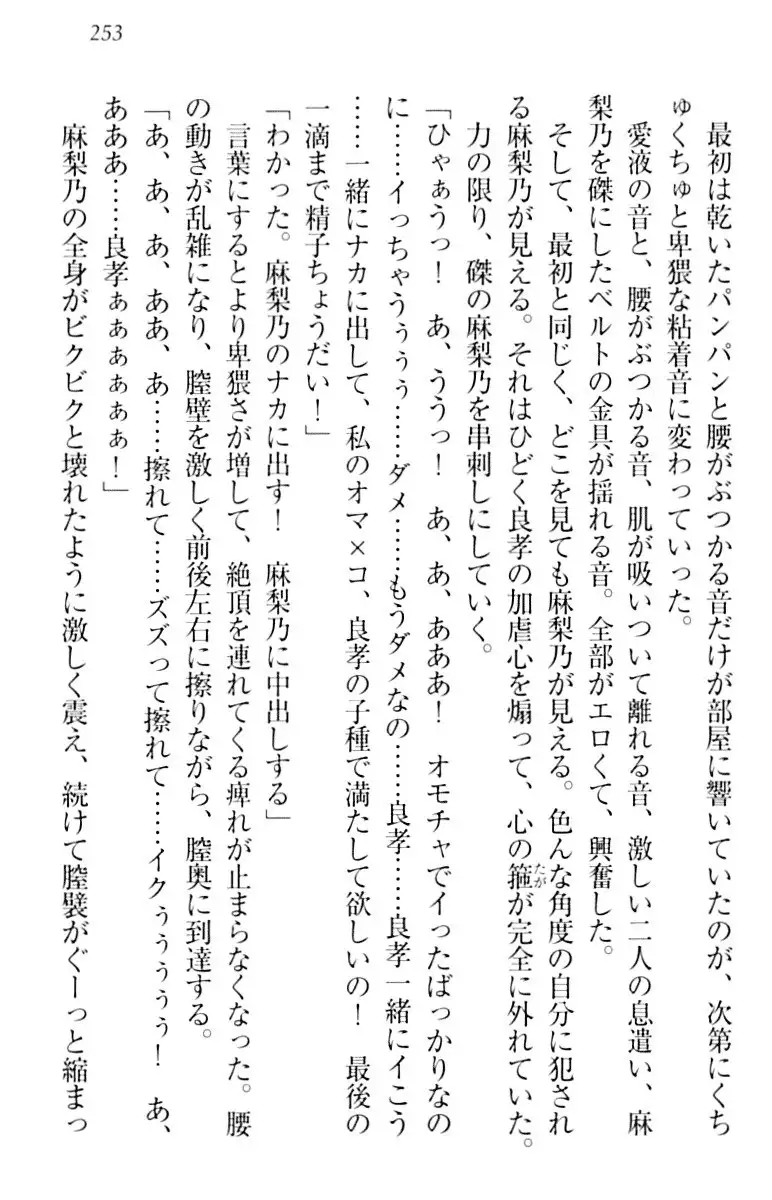 253
最初は乾いたパンパンと腰がぶつかる音だけが部屋に響いていたのが、次第にくち
ゅくちゅと卑猥な粘着音に変わっていった。
愛液の音と、腰がぶつかる音、肌が吸いついて離れる音、激しい二人の息遣い、麻
梨乃を磔にしたベルトの金具が揺れる音。全部がエロくて、興奮した。
そして、最初と同じく、どこを見ても麻梨乃が見える。色んな角度の自分に犯され
る麻梨乃が見える。それはひどく良孝の加虐心を煽って、心の箍が完全に外れていた。
たが
力の限り、磔の麻梨乃を串刺しにしていく。
「ひゃぁうっ！　あ、ううっ！　あ、あ、あああ！　オモチャでイったばっかりなの
に……イっちゃうぅぅぅ……ダメ……もうダメなの……良孝……良孝一緒にイこう
……一緒にナカに出して、私のオマ×コ、良孝の子種で満たして欲しいの！　最後の
一滴まで精子ちょうだい！」
「わかった。麻梨乃のナカに出す！　麻梨乃に中出しする」
言葉にするとより卑猥さが増して、絶頂を連れてくる痺れが止まらなくなった。腰
の動きが乱雑になり、膣壁を激しく前後左右に擦りながら、膣奥に到達する。
「あ、あ、あ、ああ、あ……擦れて……ズズって擦れて……イクぅぅぅぅぅ！　あ、
あああ……良孝ぁぁぁぁぁぁ！」
麻梨乃の全身がビクビクと壊れたように激しく震え、続けて膣襞がぐーっと縮まっ